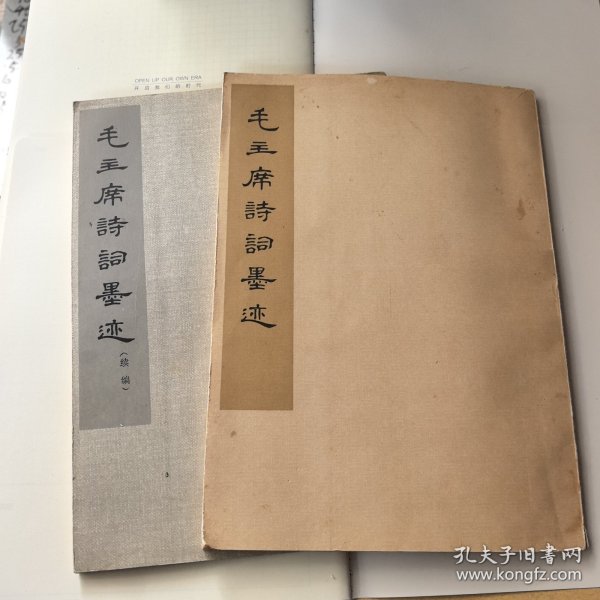 OPEN UP OUR OWN ERA
开启我们的时代
毛主席詩詞墨迹
(续编)
毛主席詩詞墨迹
孔夫子旧书网
www.kongfz.com